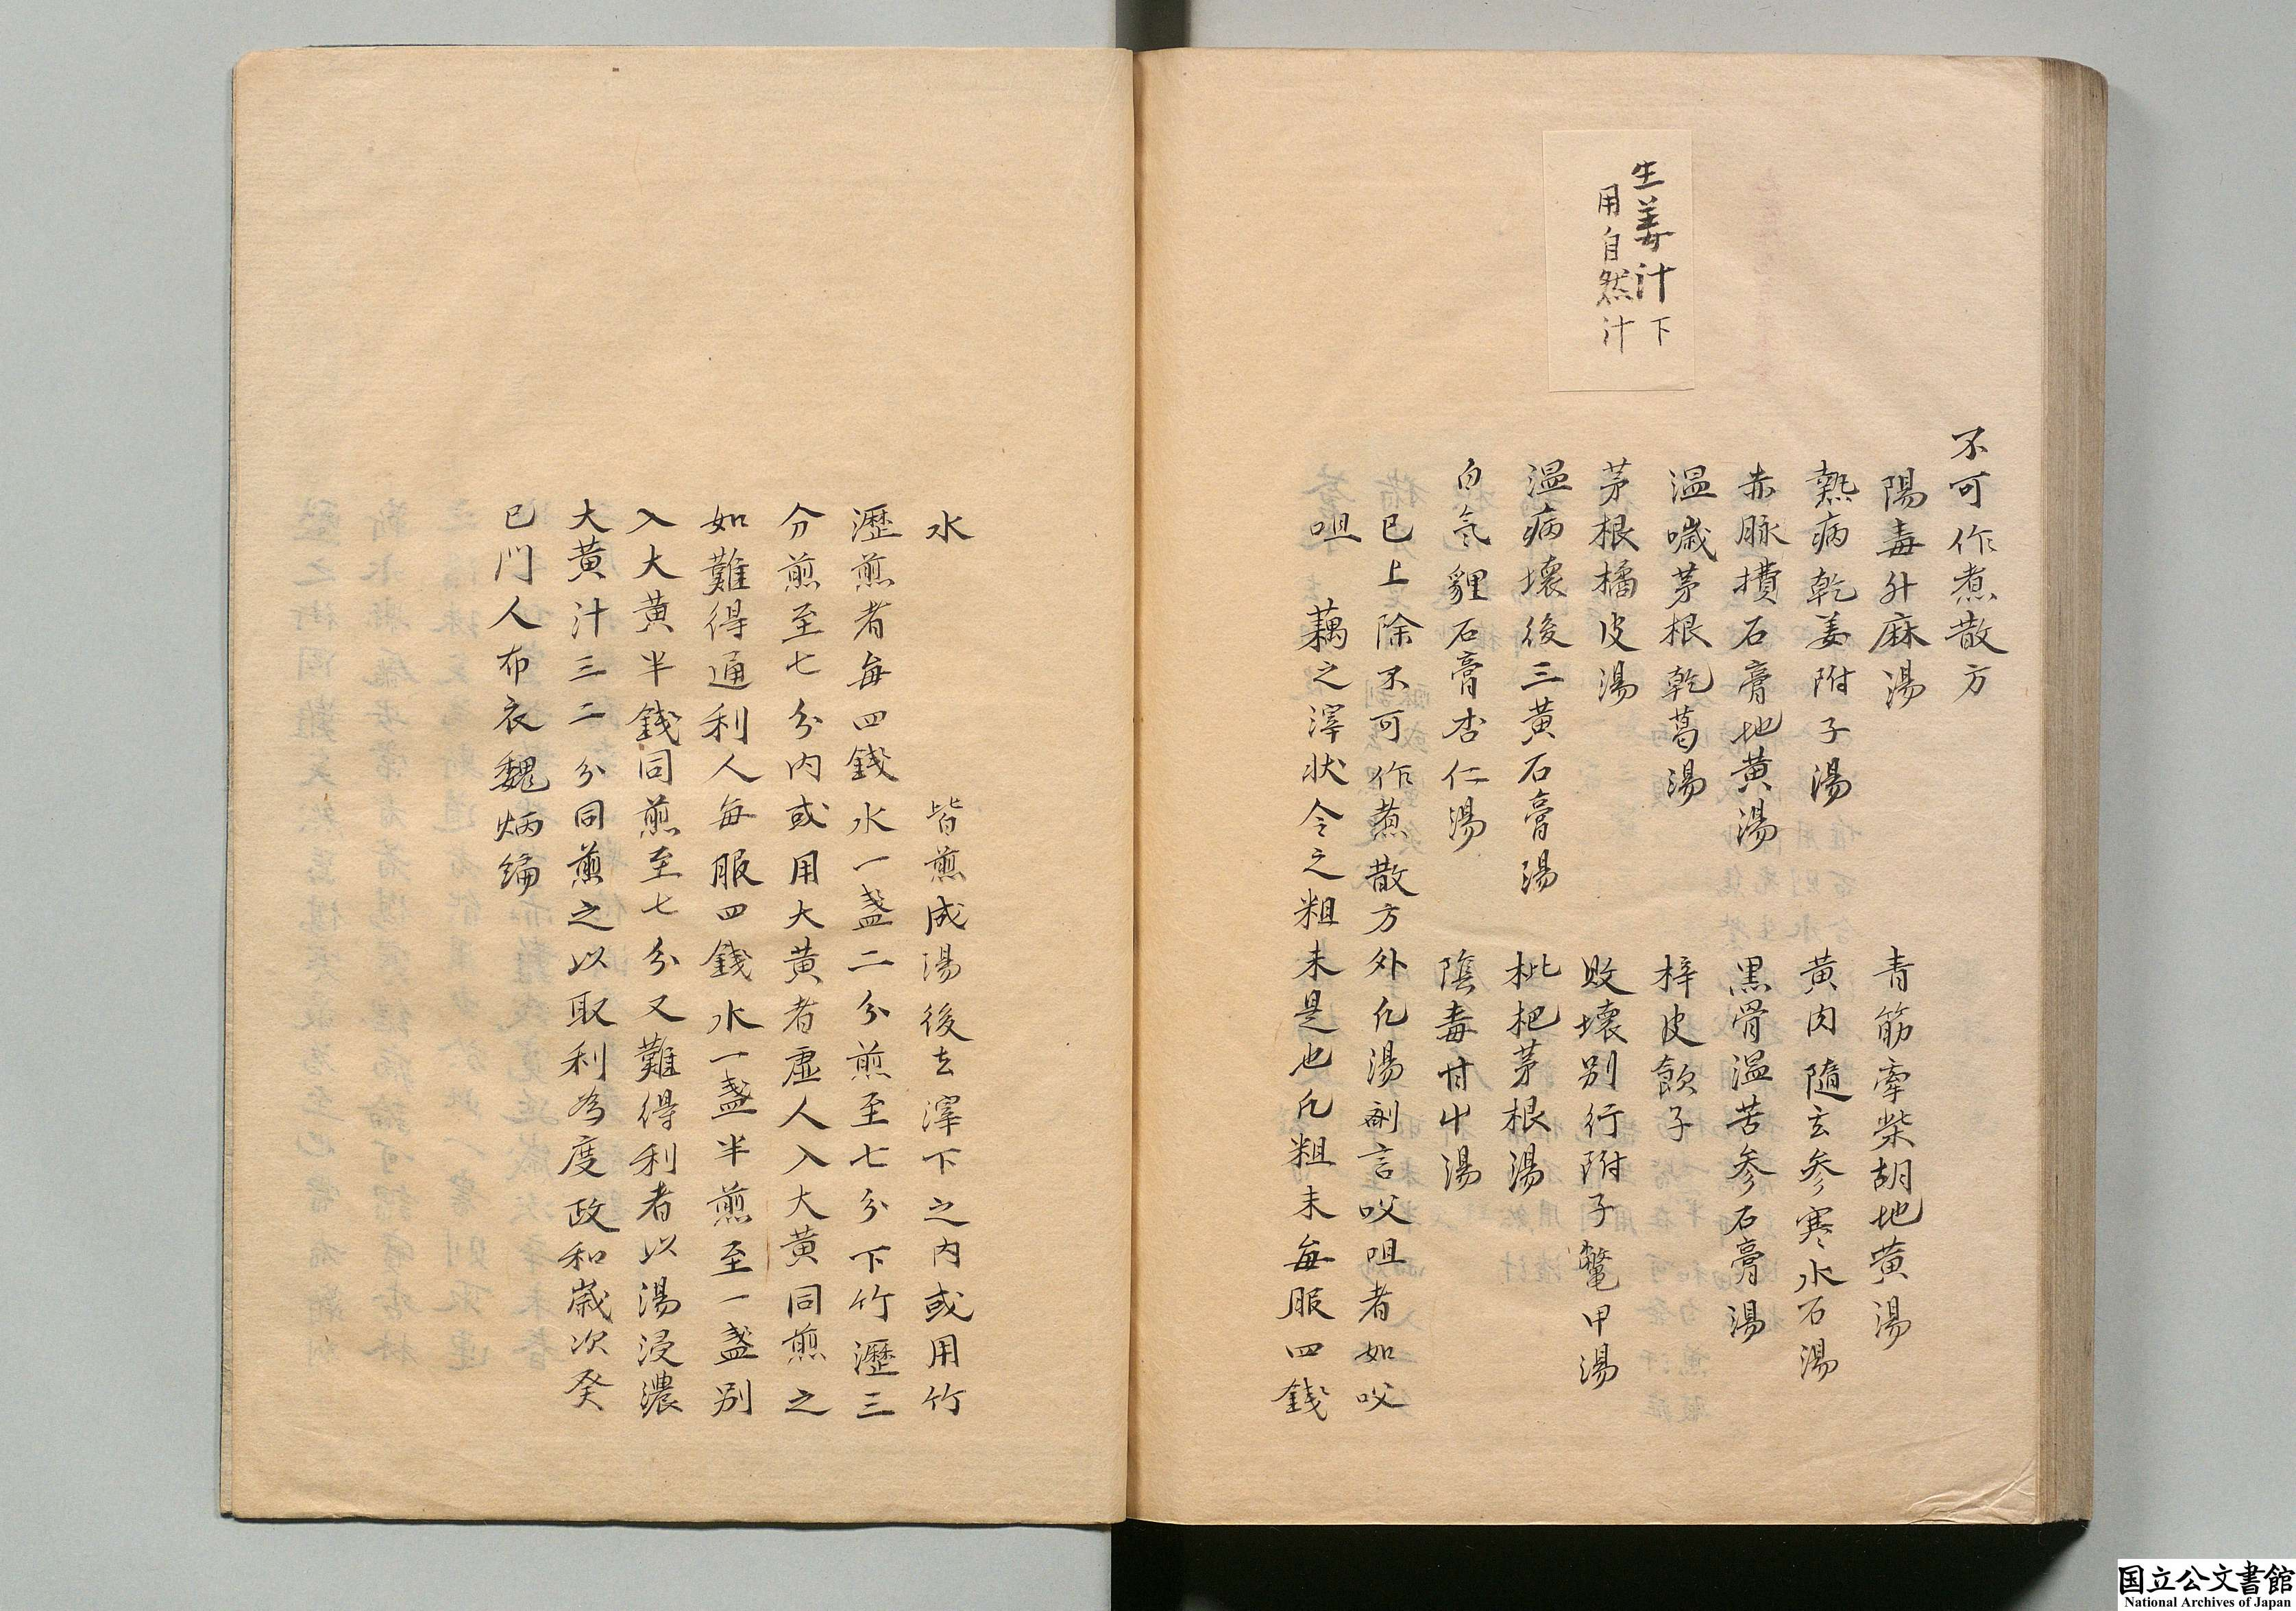 生姜汁下
用自然汁
不可作煮散方
陽毒升麻湯 青筋牽柴胡地黄湯
熱病乾姜附子湯 黄肉隨玄参寒水石湯
赤脉攢石膏地黄湯 黒骨温苦参石膏湯
温噦茅根乾葛湯 梓皮飲子
茅根橘皮湯 敗壊別行附子鼈甲湯
温病壊後三黄石膏湯 枇杷茅根湯
白氣貍石膏杏仁湯 陰毒甘屮湯
已上除不可作煮散方外凡湯劑言㕮咀者如㕮
咀 藕之滓状令之粗末是也凡粗末毎服四錢
水 皆煎成湯後去滓下之内或用竹
瀝煎者毎四錢水一盞二分煎至七分下竹瀝三
分煎至七分内或用大黄者虚人入大黄同煎之
如難得通利人毎服四錢水一盞半煎至一盞別
入大黄半錢同煎至七分又難得利者以湯浸濃
大黄汁三二分同煎之以取利為度政和歳次癸
巳門人布衣魏炳編
国立公文書館
National Archives of Japan